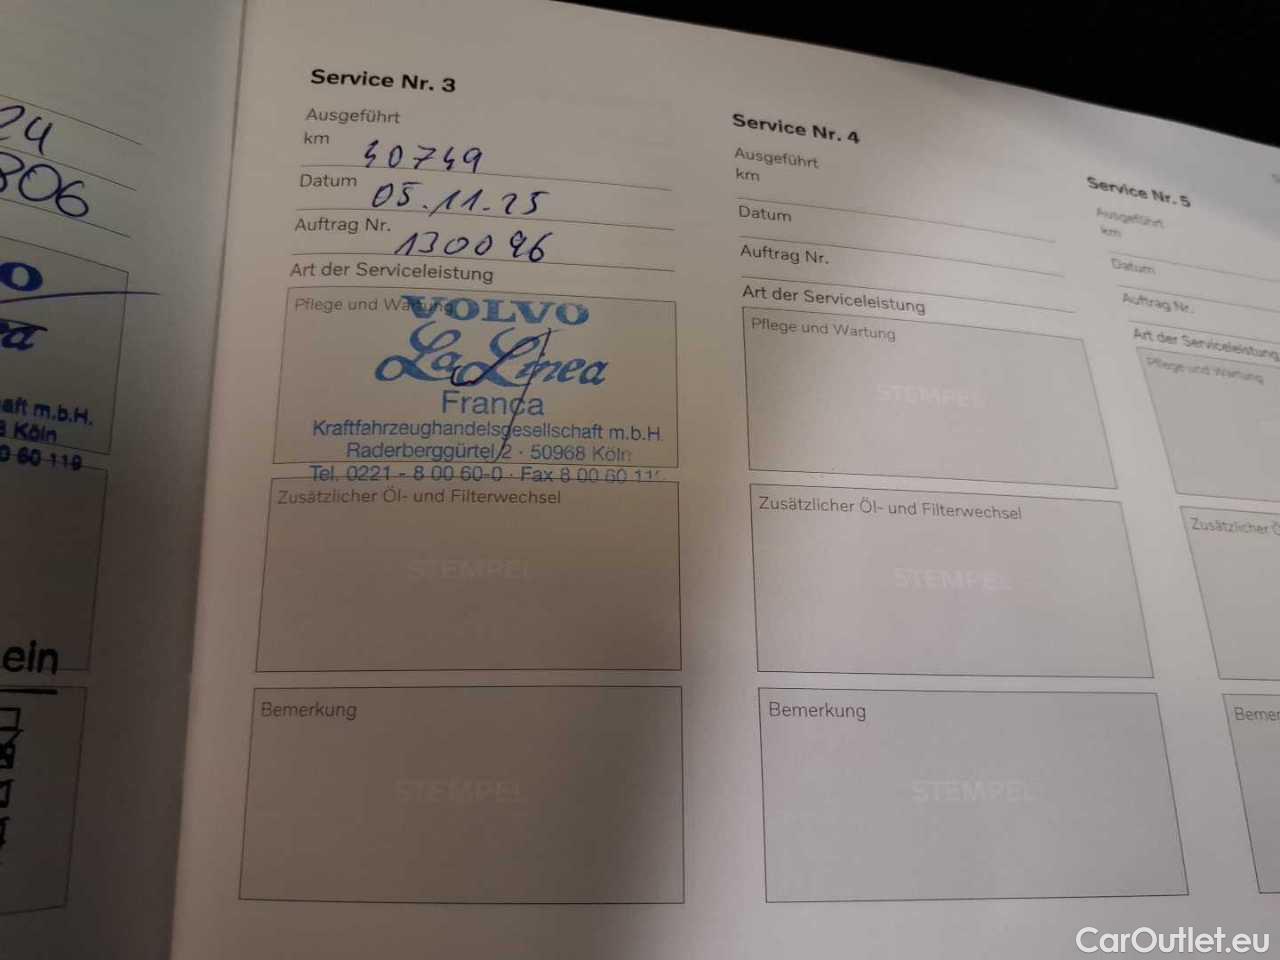 24
806
VO
ea
aft m.b.H.
8 Köln
0 60 119
ein
Service Nr. 3
Ausgeführt
km 40749
Datum 05.11.25
Auftrag Nr. 130096
Art der Serviceleistung
Pflege und Wartung
VOLVO
La Linea
Franca
Kraftfahrzeughandelsgesellschaft m.b.H.
Raderberggürtel 2 · 50968 Köln
Tel. 0221 - 8 00 60-0 · Fax 8 00 60 11
Zusätzlicher Öl- und Filterwechsel
STEMPEL
Bemerkung
STEMPEL
Service Nr. 4
Ausgeführt
km
Datum
Auftrag Nr.
Art der Serviceleistung
Pflege und Wartung
STEMPEL
Zusätzlicher Öl- und Filterwechsel
STEMPEL
Bemerkung
STEMPEL
Service Nr. 5
Ausgeführt
km
Datum
Auftrag Nr.
Art der Serviceleistung
Pflege und Wartung
Zusätzlicher Ö
Bemer
CarOutlet.eu